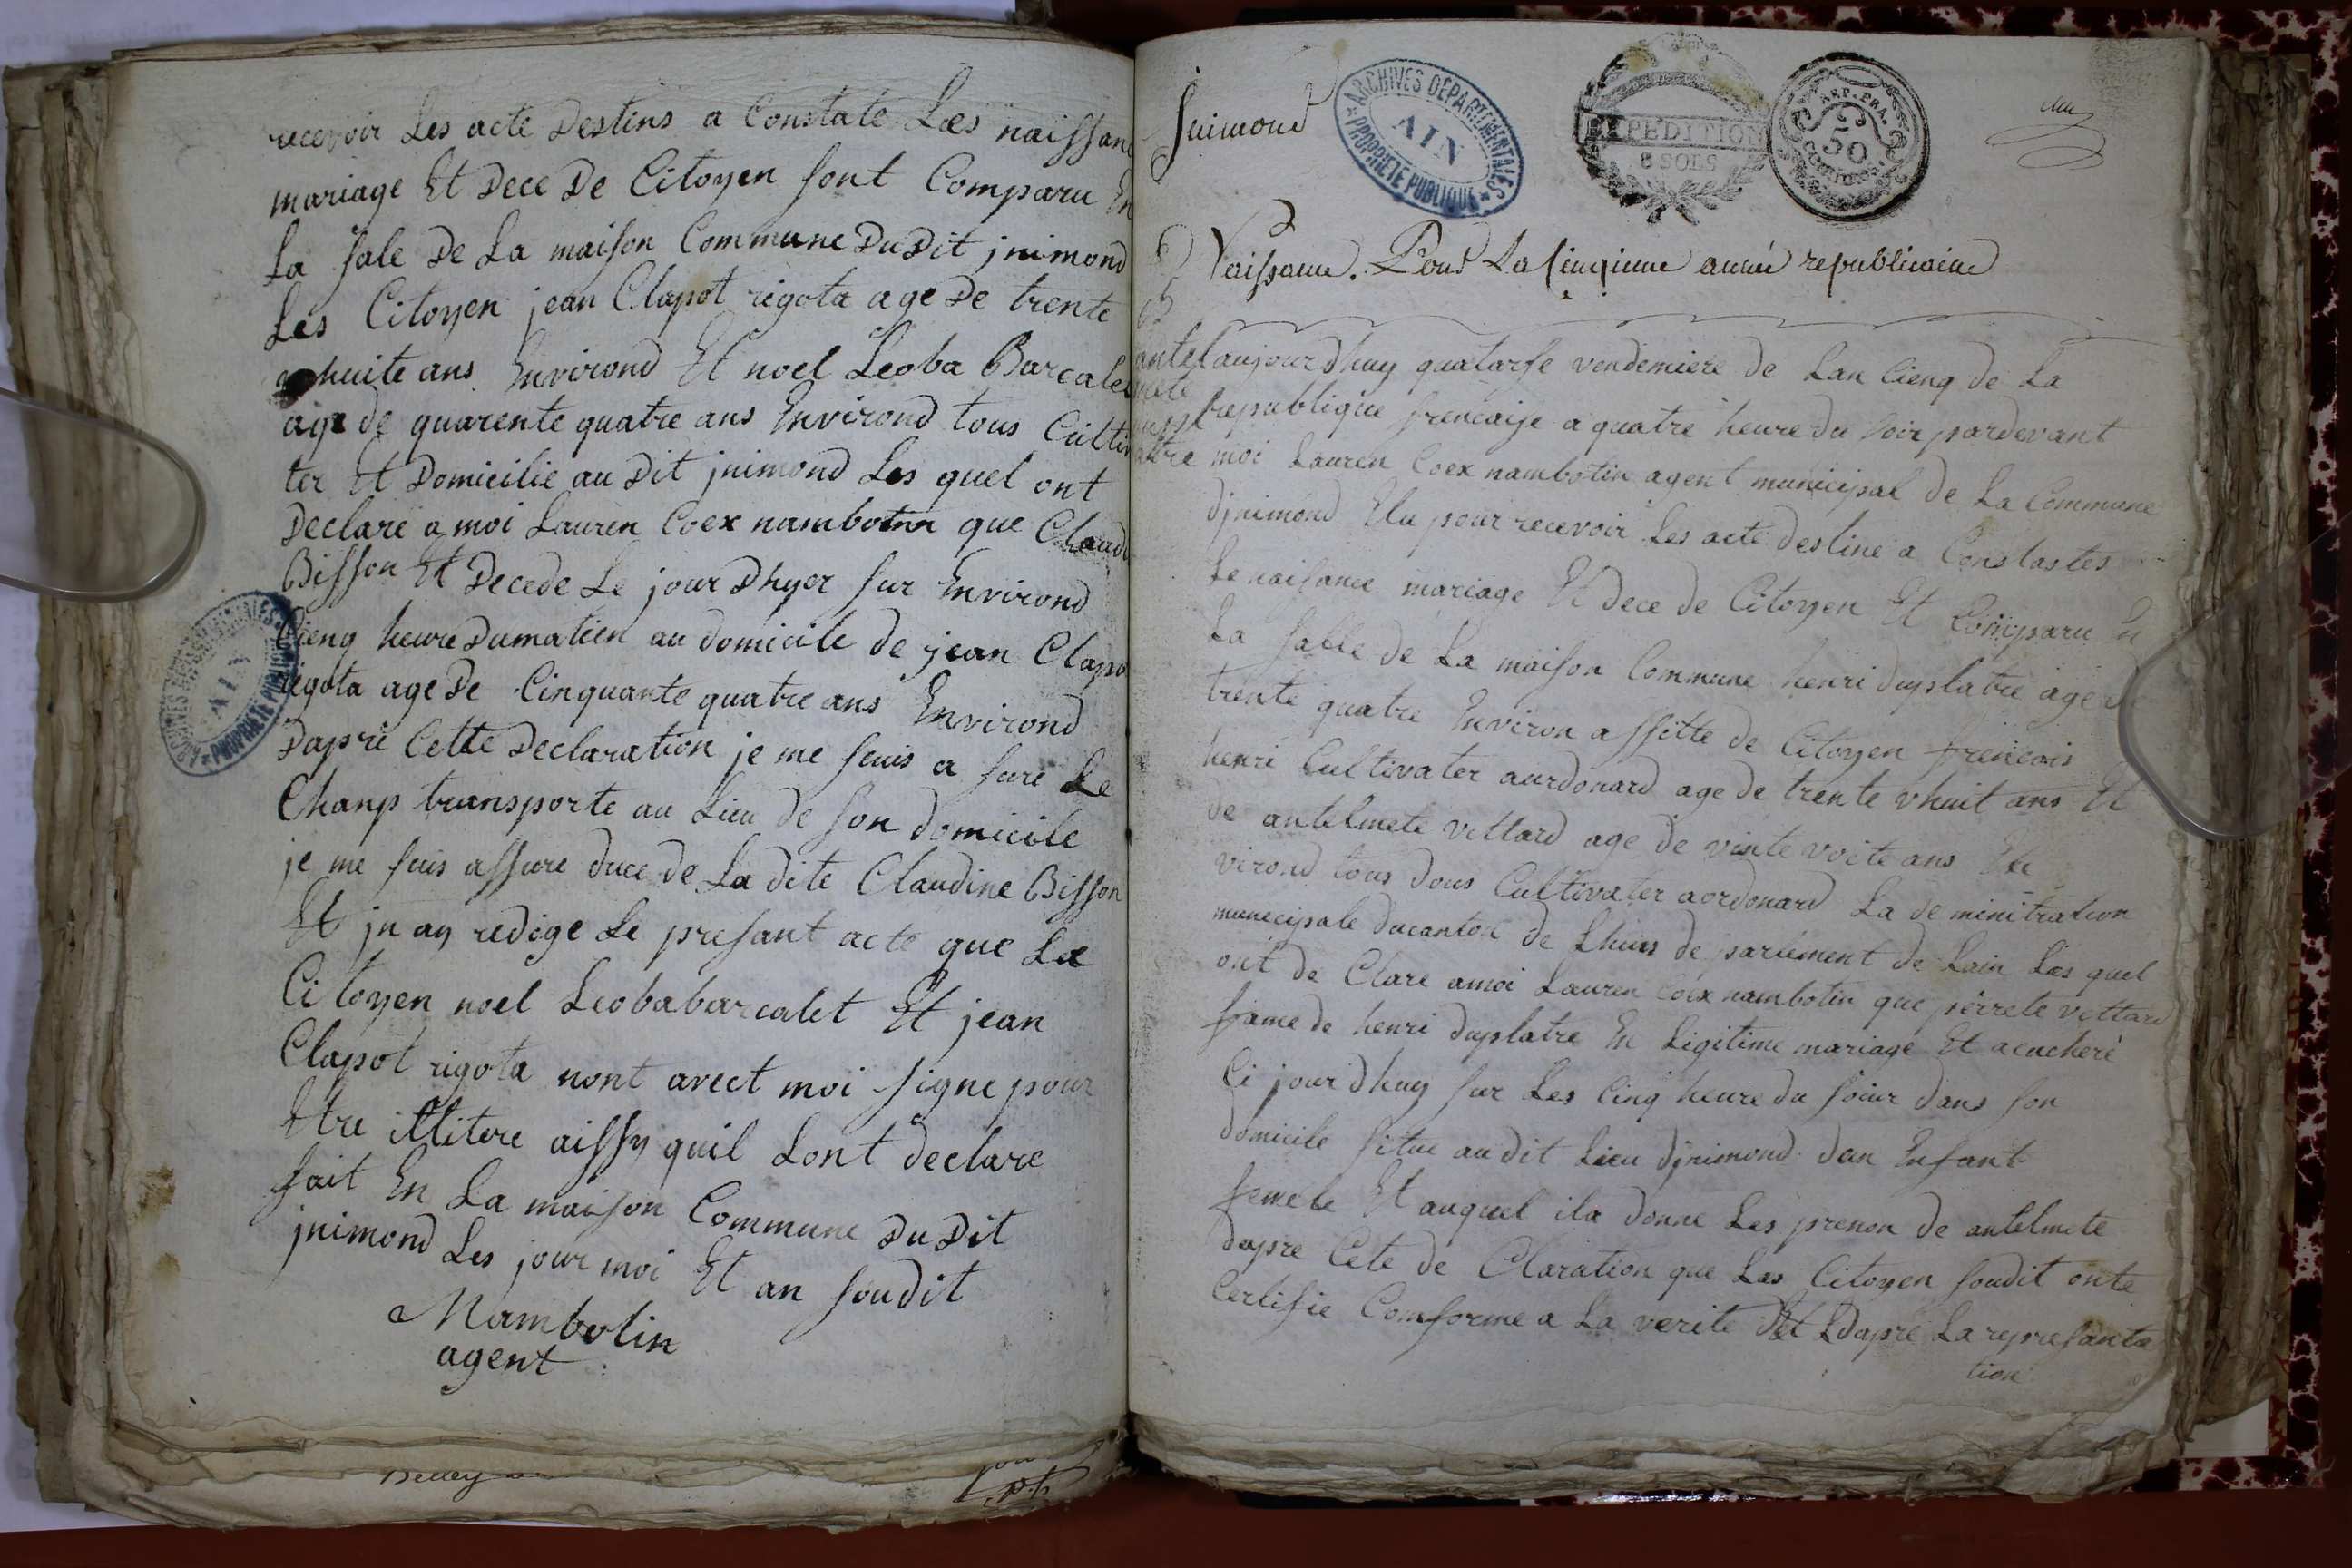 recevoir Les acte Destins a Constate Les naissan
mariage Et Dece De Citoyen sont Comparu En
La sale De La maison Commune Du Dit jnimond
Les Citoyen jean Clapot rigota age De trente
vhuite ans Environd Et noel Leoba Barcalet
age de quarente quatre ans Environd tous Cultiv
ter Et Domicilie au Dit jnimond Les quel ont
Declare a moi Lauren Coex nambotin que Claudi
Bisson Et Decede Le jour Dhyer sur Environd
Cienq heure Dumatien au domicile de jean Clapo
rigota age De Cinquante quatre ans Environd
Dapré Cette Declaration je me suis a sure Le
Chanp transporte au Lieu de son domicile
je me suis assure duce de La dite Claudine Bisson
Et jn ay redige Le presant acte que Le
Citoyen noel Leobabarcalet Et jean
Clapot rigota nont avect moi signe pour
Etre illitere aissy quil Lont declare
fait En La maison Commune Du Dit
jnimond Les jour moi Et an soudit
Nambotin
agent
jnimond
ARCHIVES DEPARTEMENTALES
AIN
PROPRIETE PUBLIQUE
EXPEDITION
8 SOLS
REP. FRA.
50
CENTIMES
Naissance. Pour La Cinqieme année republicaine
aujourdhuy quatorse vendemiere de Lan Cienq de La
republique frencaise a quatre heure du soir pardevant
moi Lauren Coex nambotin agent municipal de La Commune
djnimond Elu pour recevoir Les acte destine a Constastes
Le naisance mariage Et dece de Citoyen Et Comparu En
La salle de La maison Commune henri duplatre age de
trente quatre Environ assitte de Citoyen frencois
henri Cultivater aurdonard age de trente vhuit ans Et
de antelmete vettard age de vinte voite ans En
virond tous dous Cultivater aordonard La de minitration
municipale ducanton de Lhuis de partement de Lain Les quel
ont de Clare amoi Lauren Coex nambotin que perrete vettard
fame de henri duplatre En Ligitime mariage Et acucheré
Ci jourdhuy sur Les Cinq heure du soiur dans son
domicile situe au dit Lieu djnimond dun Enfant
femele Et auquel ila donne Les prenon de antelmete
dapre Cete de Claration que Les Citoyen soudit onte
Certifie Comforme a La verite Et Ldapre La represanta
tion